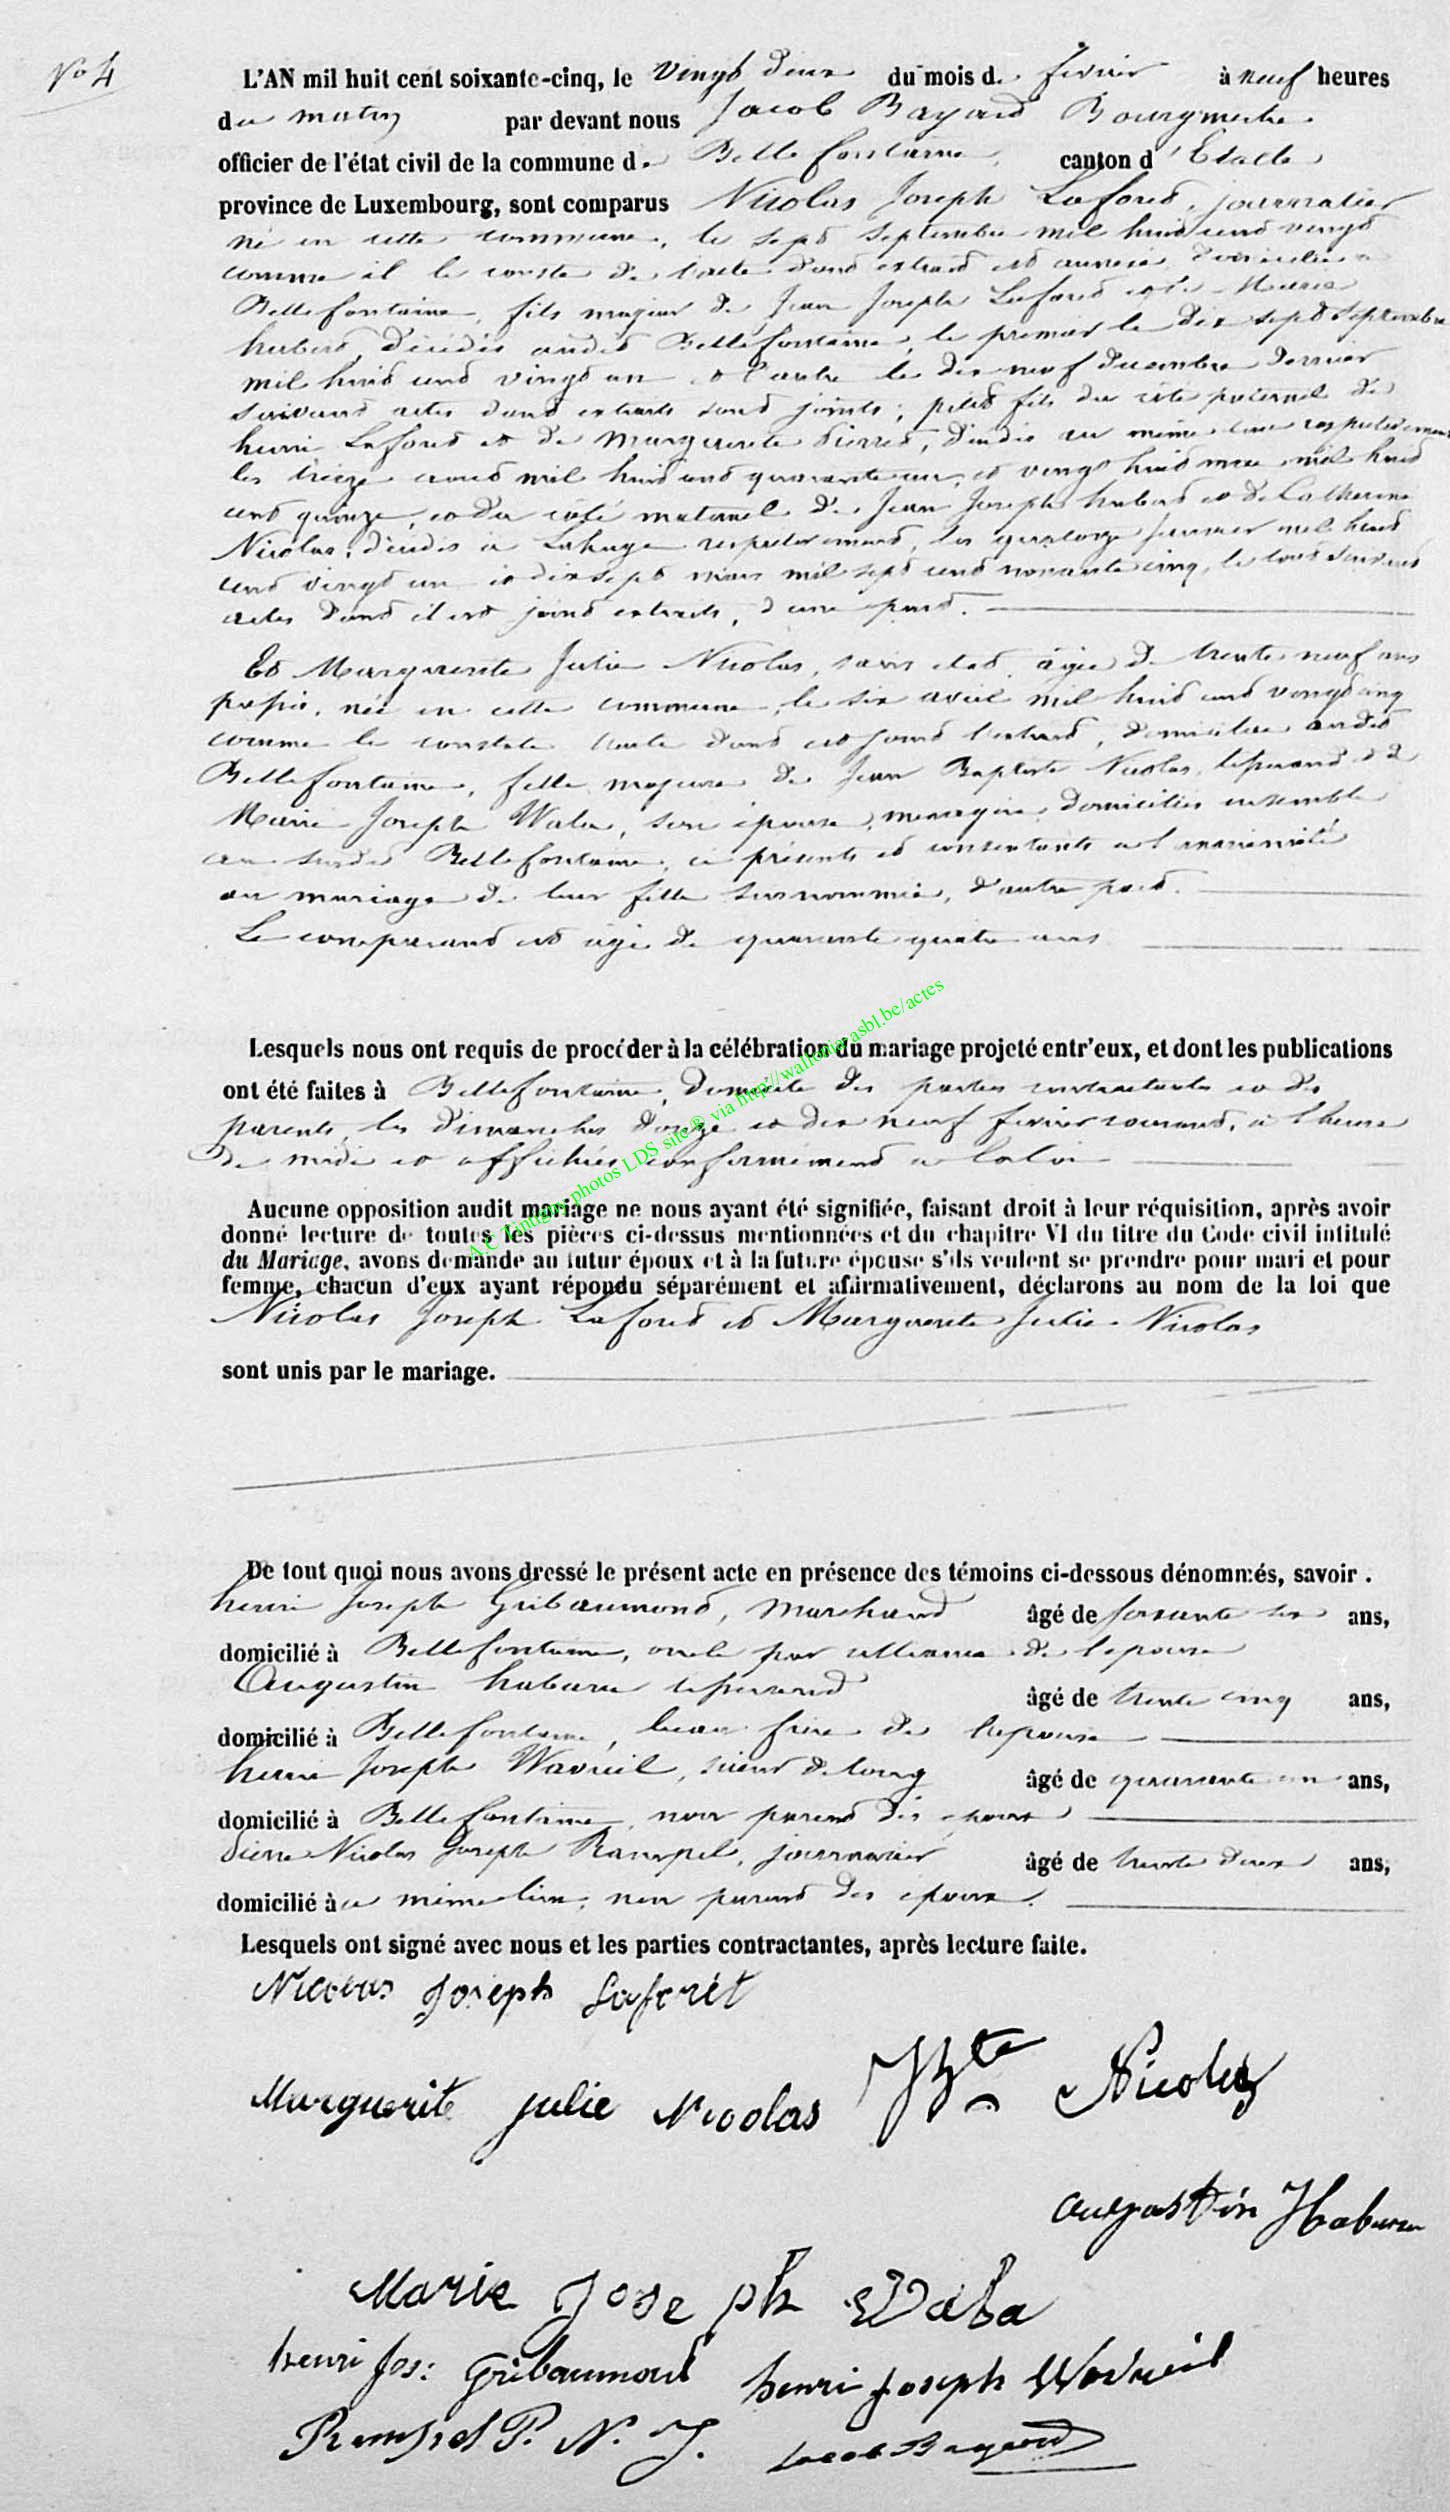 No 4
L'AN mil huit cent soixante-cinq, le vingt deux du mois de février à neuf heures
du matin par devant nous Jacob Bayard Bourgmestre
officier de l'état civil de la commune de Bellefontaine, canton d'Etalle
province de Luxembourg, sont comparus Nicolas Joseph Laforet, journalier
né en cette commune, le sept septembre mil huit cent vingt
comme il le conste de l'acte dont extrait est annexé, domicilié à
Bellefontaine, fils majeur de Jean Joseph Laforet et de Marie
hubert, décédés audit Bellefontaine, le premier le dix sept septembre
mil huit cent vingt un et l'autre le dix neuf décembre dernier
suivant actes dont extraits sont joints; petit fils du côté paternel de
henri Laforet et de Marguerite Pierret, décédés au même lieu respectivement
les treize août mil huit cent quarante un, et vingt huit mai mil huit
cent quinze, et du côté maternel de Jean Joseph hubert et de Catherine
Nicolas, décédés à Lahage respectivement, les quatorze janvier mil huit
cent vingt un et dix sept mars mil sept cent nonante cinq, le tout suivant
actes dont il est joint extraits, d'une part.
Et Marguerite Julie Nicolas, sans état, âgée de trente neuf ans
passés, née en cette commune, le six avril mil huit cent vingt cinq
comme le constate l'acte dont est joint l'extrait, domiciliée audit
Bellefontaine, fille majeure de Jean Baptiste Nicolas, tisserand et de
Marie Joseph Waba, son épouse, ménagère, domiciliés ensemble
au susdit Bellefontaine, ci présents et consentants
au mariage de leur fille susnommée, d'autre part.
Le comparant est âgé de quarante quatre ans
Lesquels nous ont requis de procéder à la célébration du mariage projeté entr'eux, et dont les publications
ont été faites à Bellefontaine, domicile des parties contractantes et des
parents, les dimanches douze et dix neuf février courant, à l'heure
de midi et affichées conformément à la loi
Aucune opposition audit mariage ne nous ayant été signifiée, faisant droit à leur réquisition, après avoir
donné lecture de toutes les pièces ci-dessus mentionnées et du chapitre VI du titre du Code civil intitulé
du Mariage, avons demandé au futur époux et à la future épouse s'ils veulent se prendre pour mari et pour
femme, chacun d'eux ayant répondu séparément et affirmativement, déclarons au nom de la loi que
Nicolas Joseph Laforet et Marguerite Julie Nicolas
sont unis par le mariage.
De tout quoi nous avons dressé le présent acte en présence des témoins ci-dessous dénommés, savoir.
henri Joseph Gribaumont, marchand âgé de soixante six ans,
domicilié à Bellefontaine, oncle par alliance de l'épouse
Augustin habaru tisserand âgé de trente cinq ans,
domicilié à Bellefontaine, beau frère de l'épouse
henri Joseph Wavreil, scieur de long âgé de quarante un ans,
domicilié à Bellefontaine, non parent des époux
Pierre Nicolas Joseph Rampel, journalier âgé de trente deux ans,
domicilié à ce même lieu, non parent des époux.
Lesquels ont signé avec nous et les parties contractantes, après lecture faite.
Nicolas Joseph Laforêt
Marguerite Julie Nicolas JBte Nicolas
Augustin Habaru
Marie Joseph Waba
henri Jos: Gribaumont henri Joseph Wavreil
Rampel P. N. J. Jacob Bayard
A.C Tintigny photos LDS site ® via http://wallonia-asbl.be/actes